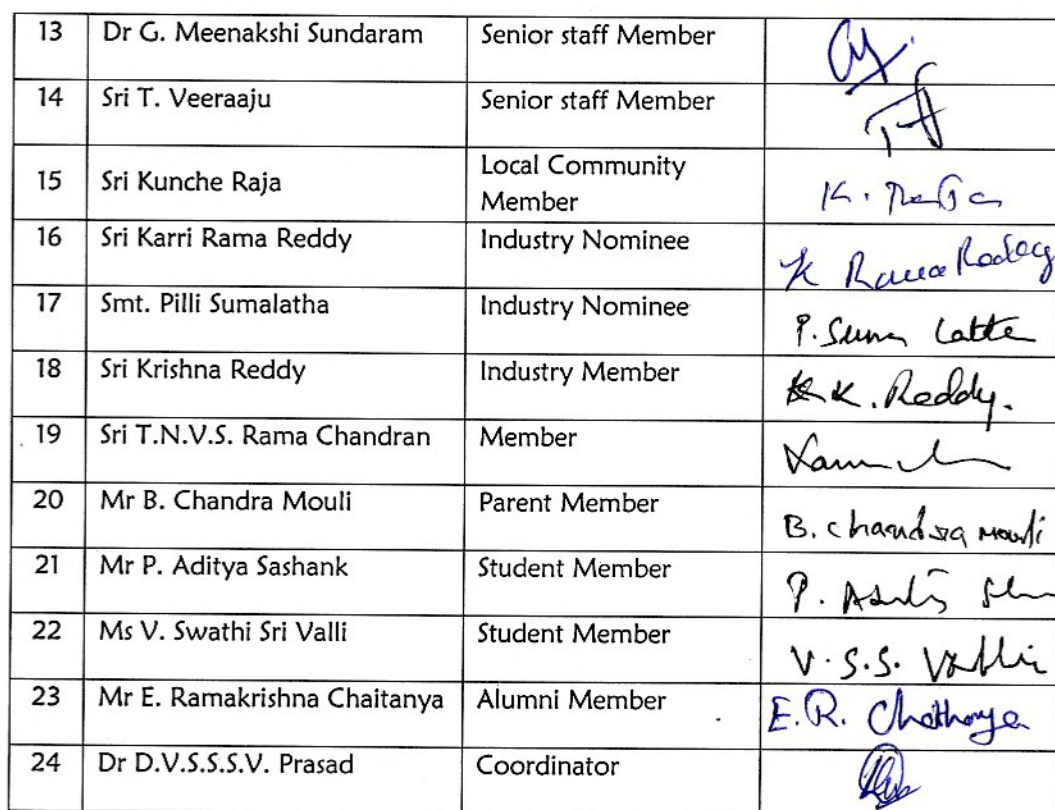 13 Dr G. Meenakshi Sundaram Senior staff Member
14 Sri T. Veeraaju Senior staff Member
15 Sri Kunche Raja Local Community Member K. Raja
16 Sri Karri Rama Reddy Industry Nominee K Rama Reddy
17 Smt. Pilli Sumalatha Industry Nominee P. Suma Latha
18 Sri Krishna Reddy Industry Member K. Reddy.
19 Sri T.N.V.S. Rama Chandran Member
20 Mr B. Chandra Mouli Parent Member B. Chandra Mouli
21 Mr P. Aditya Sashank Student Member P.
22 Ms V. Swathi Sri Valli Student Member V.S.S. Valli
23 Mr E. Ramakrishna Chaitanya Alumni Member E.R. Chaithanya
24 Dr D.V.S.S.S.V. Prasad Coordinator